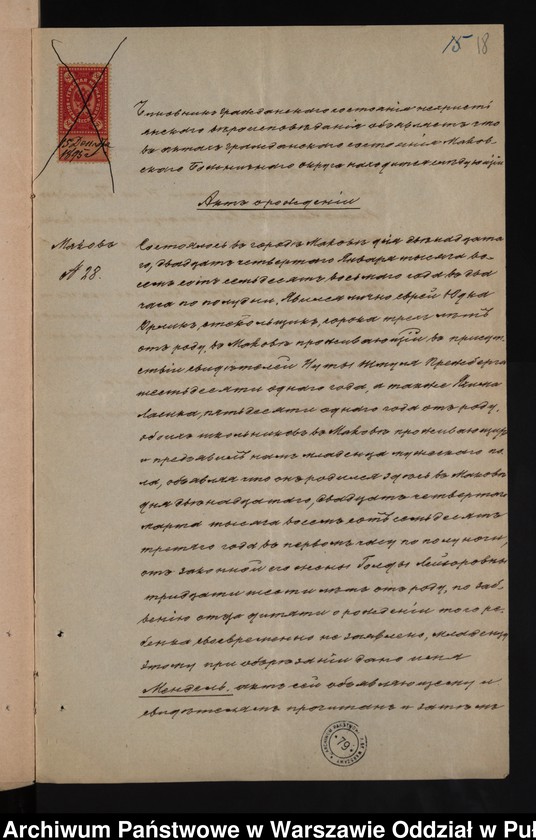 15 18
15 Декабря
1895 г
Чиновникъ гражданскаго состоянія нехристі
анскаго вѣроисповѣданія объявляетъ что
въ актахъ гражданскаго состоянія Маков-
скаго Божничнаго округа находится слѣдующій
Актъ о рожденіи
Маковъ
№ 28.
Состоялось въ городѣ Маковѣ дня двѣнадцата-
го, двадцать четвертаго Января тысяча во-
семь сотъ семьдесятъ восьмаго года въ два
часа по полудни. Явился лично еврей Юдка
стекольщикъ, сорока трехъ лѣтъ
отъ роду, въ Маковѣ проживающій въ присут-
ствіи свидѣтелей Нуты
шестьдесяти одного года, а также
пятьдесяти одного года отъ роду,
обоихъ школьниковъ въ Маковѣ проживающихъ
и предъявилъ намъ младенца мужескаго по-
ла, объявляя что онъ родился здѣсь въ Маковѣ
дня двѣнадцатаго, двадцать четвертаго
марта тысяча восемь сотъ семьдесятъ
третьяго года въ первомъ часу по полуночи,
отъ законной его жены Голды Лейзоровны
тридцати шести лѣтъ отъ роду, по заб-
венію отца дитяти о рожденіи того ре-
бенка своевременно не заявлено, младенцу
этому при обрѣзаніи дано имя
Мендель. актъ сей объявляющему и
свидѣтелямъ прочитанъ и затѣмъ
ARCHIWUM PAŃSTWOWE M.ST. WARSZAWY
79
Archiwum Państwowe w Warszawie Oddział w Puł